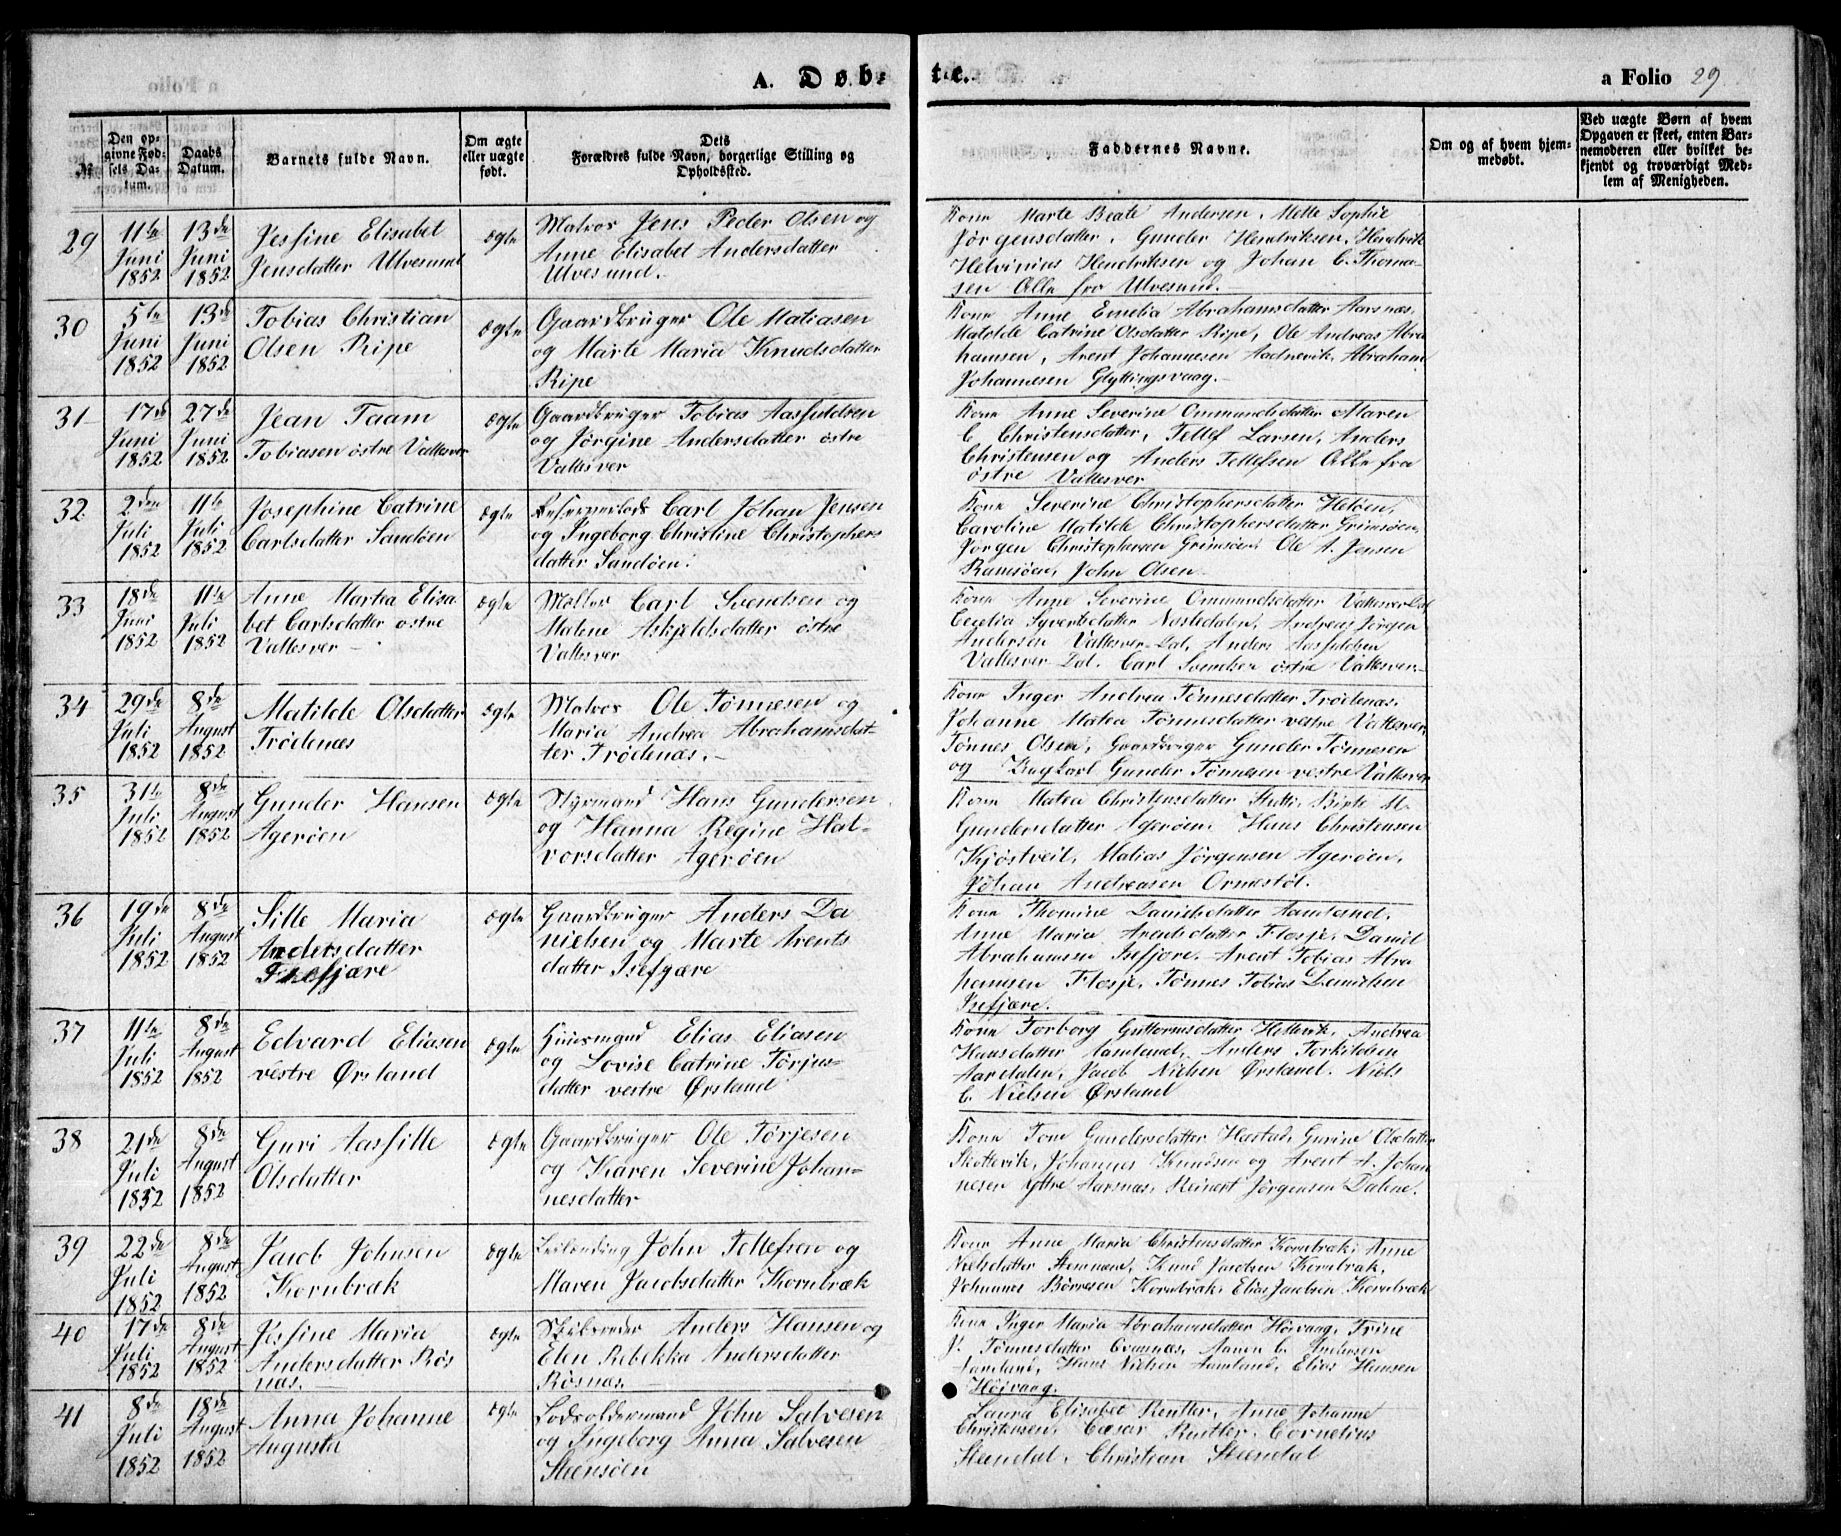 A. Døb-
te.
a Folio 29
№
Den op-
givne Fød-
sels Da-
tum.
Daabs
Datum.
Barnets fulde Navn.
Om ægte
eller uægte
født.
Dets
Forældres fulde Navn, borgerlige Stilling og
Opholdssted.
Faddernes Navne.
Om og af hvem hjem-
medøbt.
Ved uægte Børn af hvem
Opgaven er skeet, enten Bar-
nemoderen eller hvilket be-
kjendt og troværdigt Med-
lem af Menigheden.
29
11te
Juni
1852
13de
Juni
1852
Jessine Elisabet
Jensdatter Ulvesund
ægte
Matros Jens Peder Olsen og
Anne Elisabet Andersdatter
Ulvesund.
Kone Marte Beate Andersen, Mette Sophie
Jörgensdatter, Gunder Hendriksen, Hendrik
Helvinius Hendriksen og Johan C. Thoma-
sen Alle fra Ulvesund.
30
5te
Juni
1852
13de
Juni
1852
Tobias Christian
Olsen Ripe
ægte
Gaardbruger Ole Matiasen
og Marte Maria Knudsdatter
Ripe
Kone Anne Emelia Abrahamsdatter Aarsnæs,
Matilde Catrine Olsdatter Ripe, Ole Andreas Abra
hamsen, Arent Johannesen Aadnevik, Abraham
Johannesen Glyttingsvaag.
31
17de
Juni
1852
27de
Juni
1852
Jean Taam
Tobiasen östre Vallesver
ægte
Gaardbruger Tobias Aasfuldsen
og Jørgine Andersdatter östre
Vallesver
Kone Anne Severine Ommundsdatter Maren
C Christensdatter, Tellef Larsen, Anders
Christensen og Anders Tellefsen Alle fra
östre Vallesver
32
2den
Juli
1852
11te
Juli
1852
Josephine Catrine
Carlsdatter Sandöen
ægte
Reservelods Carl Johan Jensen
og Ingeborg Christine Christophers
datter Sandöen.
Kone Severine Christophersdatter Helöen,
Caroline Matilde Christophersdatter Grimsöen,
Jörgen Christophersen Grimsöen, Ole A. Jensen
Ramsöen, John Olsen
33
18de
Juni
1852
11te
Juli
1852
Anne Martea Elisa
bet Carlsdatter östre
Vallesver
ægte
Möller Carl Svendsen og
Malene Askjeldsdatter östre
Vallesver
Kone Anne Severine Ommundsdatter Vallesver Dal
Cecilia Syvertsdatter Nostedalen, Andreas Jörgen
Andersen Vallesver Dal, Anders Aasfuldsen
Vallesver Dal. Carl Svendsen östre Vallesver.
34
29de
Juli
1852
8de
August
1852
Matilde Olsdatter
Trödenæs
ægte
Matros Ole Tönnesen og
Maria Andrea Abrahamsdat-
ter Trödenæs.
Kone Inger Andrea Tönnesdatter Trödenæs,
Johanne Matea Tönnesdatter vestre Vallesver,
Tønnes Olsen, Gaardbruger Gunder Tönnesen
og Gunder Tönnesen vestre Vallesver
35
31te
Juli
1852
8de
August
1852
Gunder Hansen
Ageröen
ægte
Styrmand Hans Gundersen
og Hanna Regine Hal-
vorsdatter Ageröen
Kone Matea Christensdatter Birte M.
Gundersdatter Ageröen, Hans Christensen
Kjöstveit, Matias Jörgensen Ageröen,
Johan Andreasen Ormestöl.
36
19de
Juli
1852
8de
August
1852
Sille Maria
Andersdatter
Isefjære
ægte
Gaardbruger Anders Da
nielsen og Marte Arents
datter Isefjære
Kone Thomine Danielsdatter Aamland,
Anne Maria Arentsdatter Flosje, Daniel
Abrahamsen Isefjære, Arent Tobias Abra
hamsen Flosje, Tønnes Tobias Danielsen
Isefjære.
37
11te
Juli
1852
8de
August
1852
Edvard Eliasen
vestre Ørsland
ægte
Huusmand Elias Eliasen
og Lovise Catrine Tørjus-
datter vestre Ørsland
Kone Torborg Guttormsdatter Hellevik, Andrea
Hansdatter Aamland, Anders Torkildsen
Aardalen, Jacob Nielsen Ørsland. Niels
C. Nielsen Ørsland
38
21de
Juli
1852
8de
August
1852
Guri Aassille
Olsdatter
ægte
Gaardbruger Ole Tørjesen
og Karen Severine Johan-
nesdatter
Kone Tone Gundersdatter Hæstad, Gurine Olsdatter
Skottevik, Johannes Knudsen og Arent A. Johan
nesen yttre Aarsnæs, Reinert Jörgensen Dalene.
39
22de
Juli
1852
8de
August
1852
Jacob Johnsen
Kornbræk
ægte
Leilænding John Tellefsen og
Maren Jacobsdatter Kornbræk
Kone Anne Maria Christensdatter Kornbræk, Anne
Nielsdatter Stemmen, Knud Jacobsen Kornbræk,
Johannes Börresen Kornbræk, Elias Jacobsen Kornbræk
40
17de
Juli
1852
8de
August
1852
Jessine Maria
Andersdatter Røs
næs.
ægte
Skibsreder Anders Hansen og
Elen Rebekka Andersdatter
Røsnæs.
Kone Inger Maria Abrahamsdatter Höivaag, Trine
J. Tönnesdatter Maren C. Andersen
Aamland, Hans Nielsen Aamland, Elias Hansen
Höivaag.
41
8de
Juli
1852
18de
August
1852
Anna Johanne
Augusta
ægte
Lodsoldermand John Salvesen
og Ingeborg Anna Salvesen
Steensöen
Laura Elisabet Reutler, Anne Johanne
Christensen, Cæsar Reutler, Cornelius
Steendal, Christian Steendal